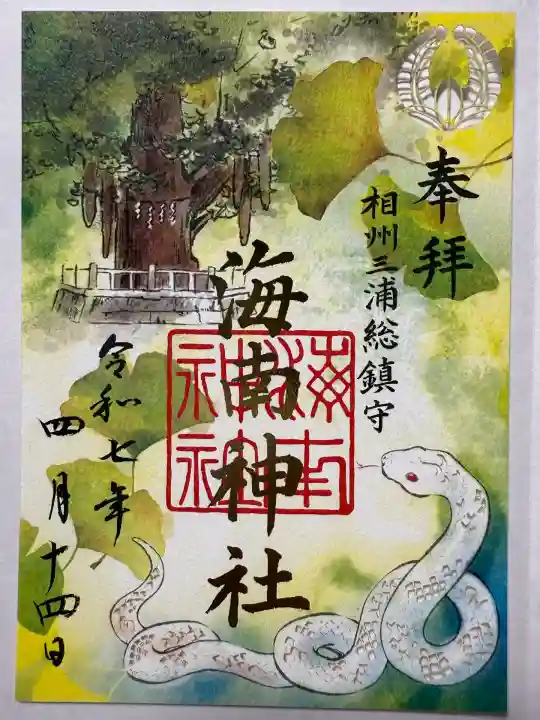 奉拝
相州三浦総鎮守
海南神社
海南神社
令和七年
四月十四日